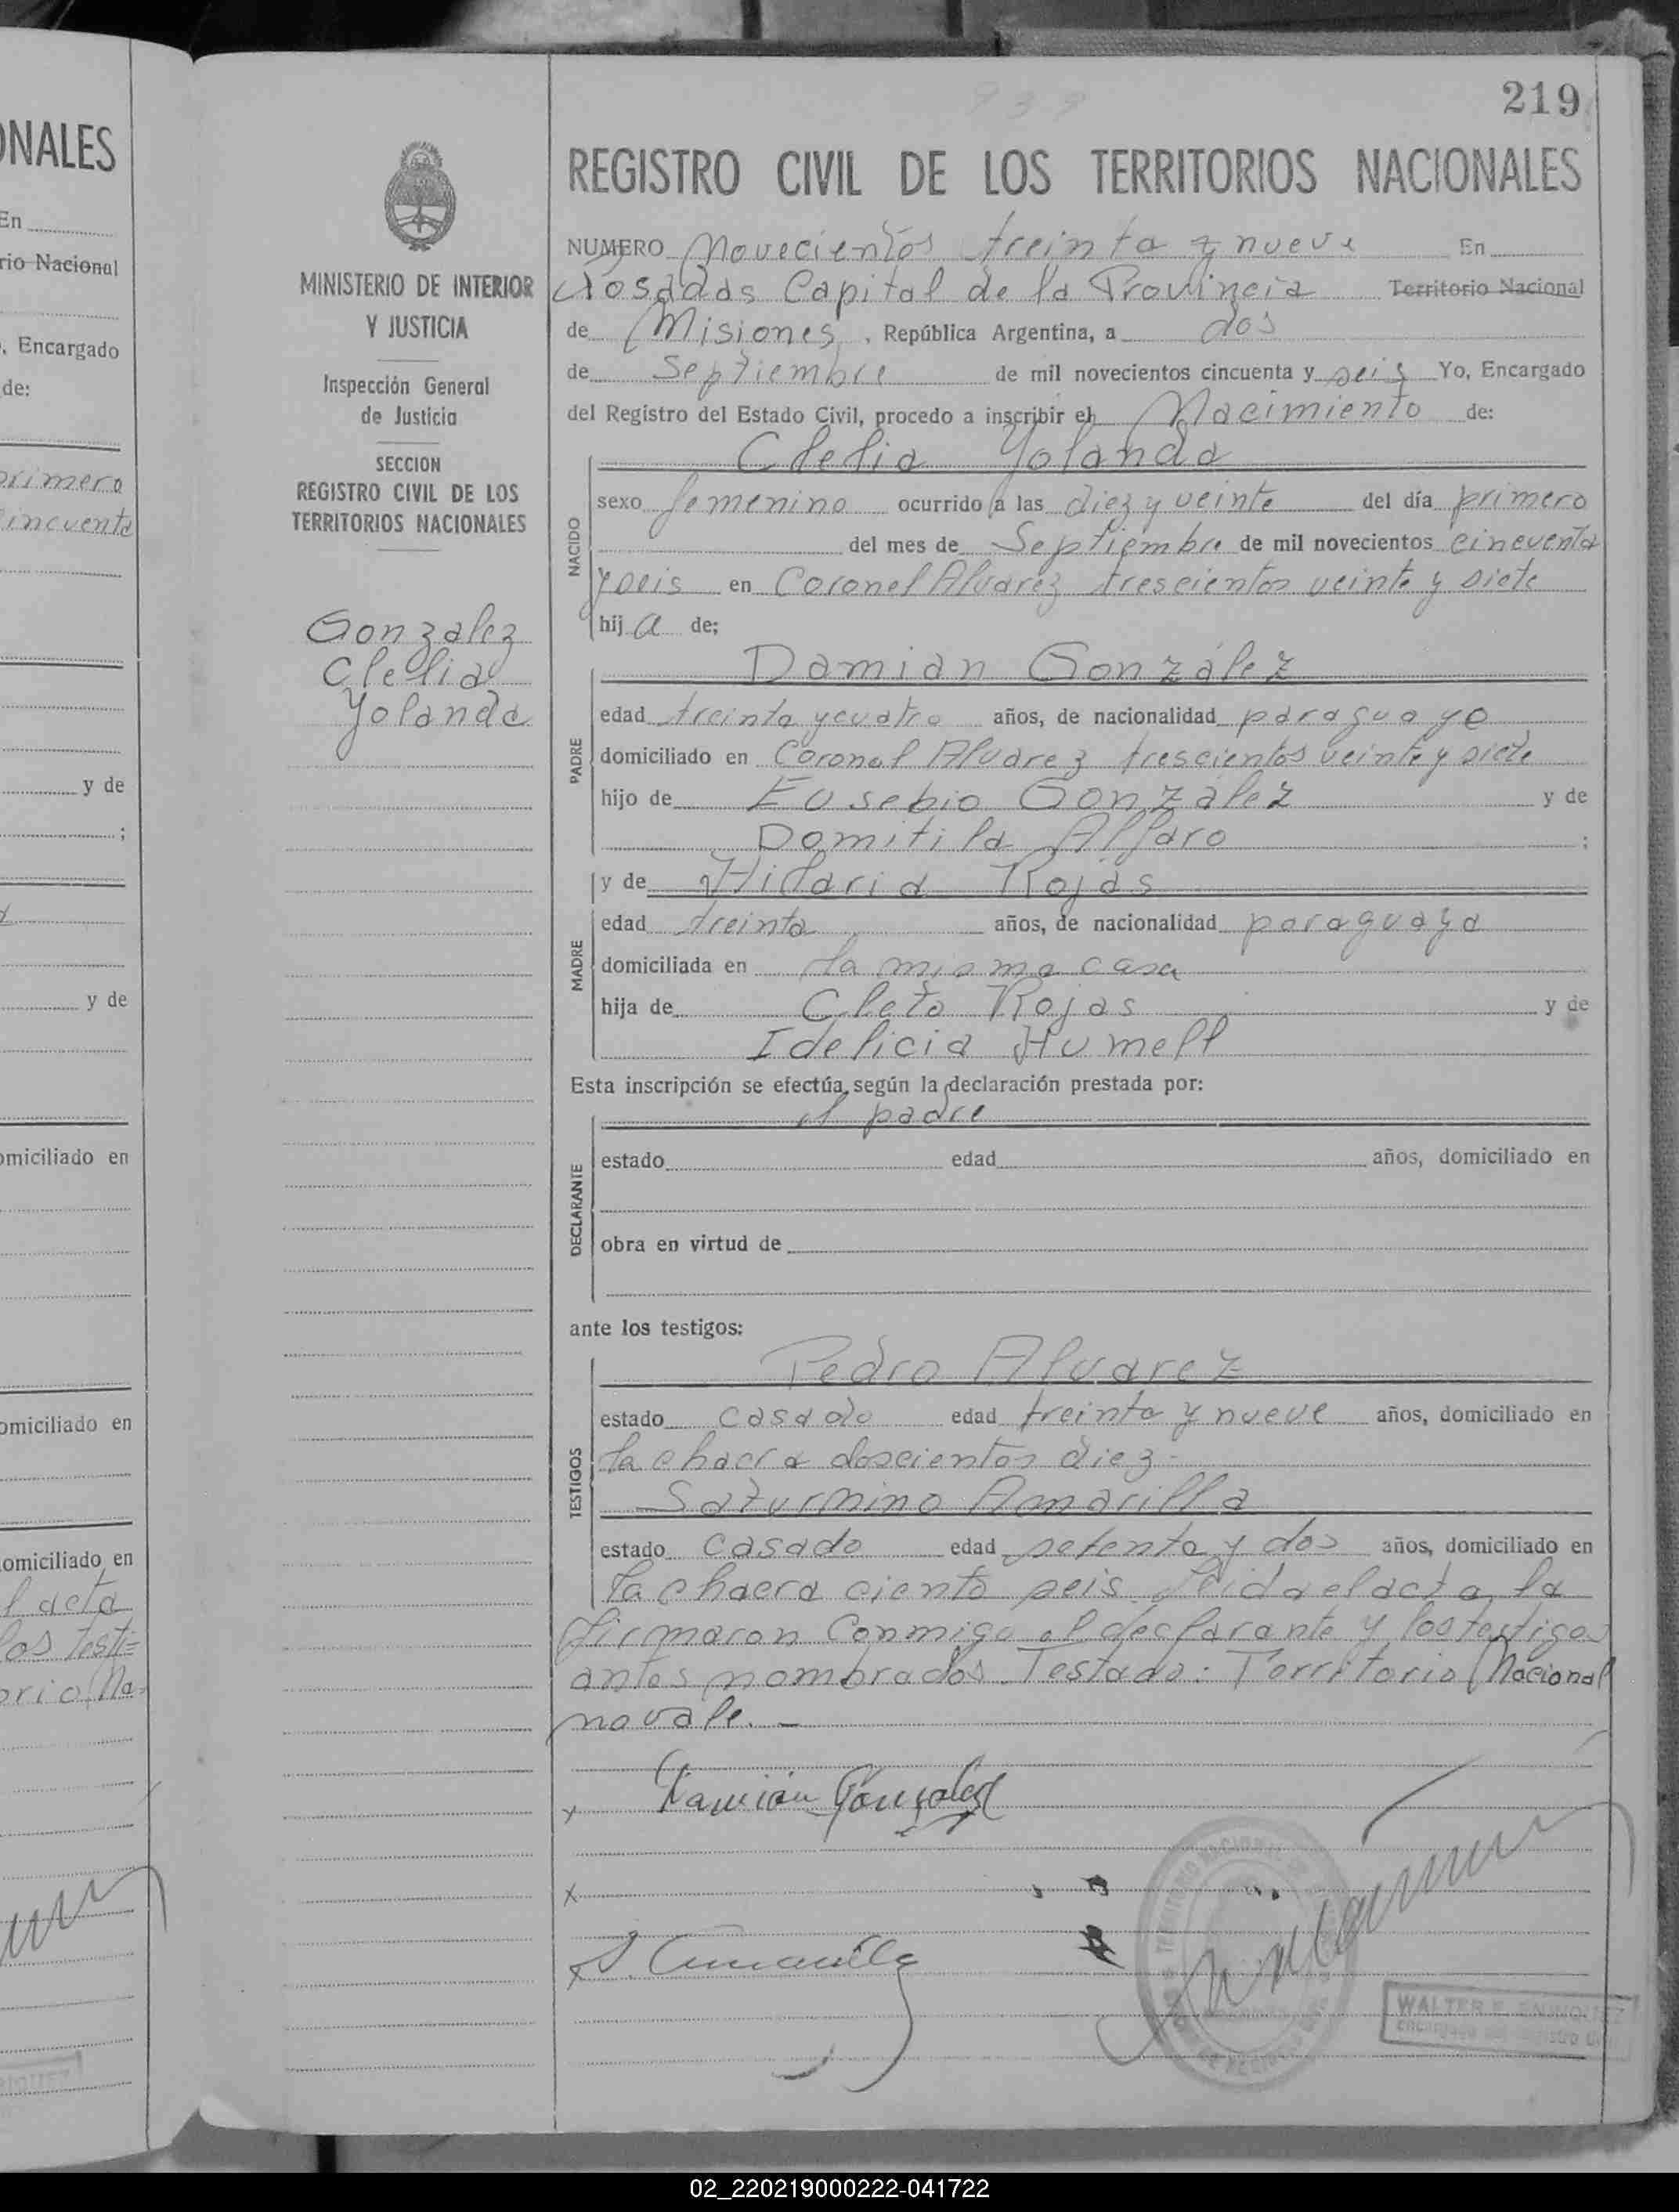 ONALES
En
rio Nacional
, Encargado
de:
primero
cincuenta
y de
;
y de
omiciliado en
omiciliado en
omiciliado en
l acta
los testi=
orio Na
219
939
MINISTERIO DE INTERIOR
Y JUSTICIA
Inspección General
de Justicia
SECCION
REGISTRO CIVIL DE LOS
TERRITORIOS NACIONALES
Gonzalez
Clelia
Yolanda
REGISTRO CIVIL DE LOS TERRITORIOS NACIONALES
NUMERO Novecientos treinta y nueve En
Posadas Capital de la Provincia Territorio Nacional
de Misiones, República Argentina, a dos
de Septiembre de mil novecientos cincuenta y seis Yo, Encargado
del Registro del Estado Civil, procedo a inscribir el Nacimiento de:
Clelia Yolanda
NACIDO
sexo femenino ocurrido a las diez y veinte del día primero
del mes de Septiembre de mil novecientos cincuenta
y seis en Coronel Alvarez trescientos veinte y siete
hij a de;
Damian González
PADRE
edad treinta y cuatro años, de nacionalidad paraguayo
domiciliado en Coronel Alvarez trescientos veinte y siete
hijo de Eusebio González y de
Domitila Alfaro ;
y de Hilaria Rojas
MADRE
edad treinta años, de nacionalidad paraguaya
domiciliada en la misma casa
hija de Cleto Rojas y de
Idelicia Humell
Esta inscripción se efectúa según la declaración prestada por:
el padre
DECLARANTE
estado edad años, domiciliado en
obra en virtud de
ante los testigos:
Pedro Alvarez
TESTIGOS
estado casado edad treinta y nueve años, domiciliado en
la chacra doscientos diez.
Saturnino Amarilla
estado casado edad setenta y dos años, domiciliado en
la chacra ciento seis. Leida el acta la
firmaron conmigo el declarante y los testigos
antes nombrados. Testado: Territorio Nacional
no vale. -
x Damián González
x
x S. Amarilla
WALTER E. ENRIQUEZ
Encargado del Registro Civil
02_220219000222-041722